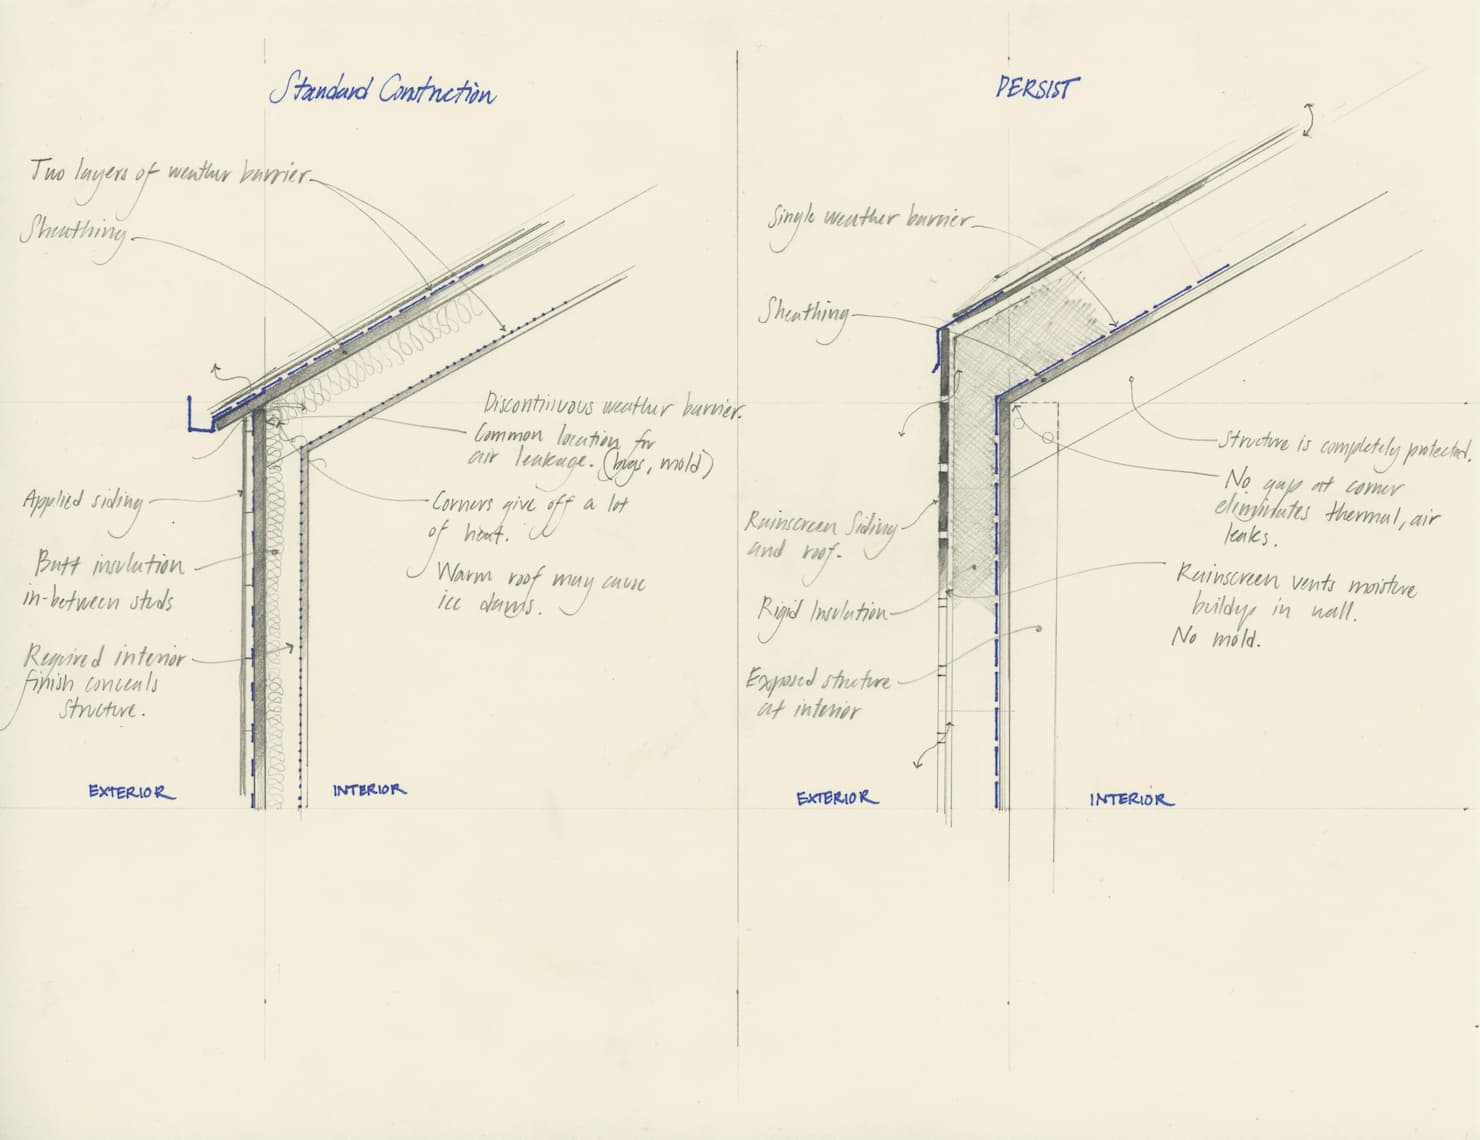 Standard Construction
Two layers of weather barrier
Sheathing
Discontinuous weather barrier.
Common location for
air leakage. (bugs, mold)
Corners give off a lot
of heat.
Warm roof may cause
ice dams.
Applied siding
Batt insulation
in-between studs
Required interior
finish conceals
structure.
EXTERIOR
INTERIOR
PERSIST
Single weather barrier
Sheathing
Structure is completely protected.
No gap at corner
eliminates thermal, air
leaks.
Rainscreen Siding
and roof.
Rainscreen vents moisture
buildup in wall.
No mold.
Rigid Insulation
Exposed structure
at interior
EXTERIOR
INTERIOR